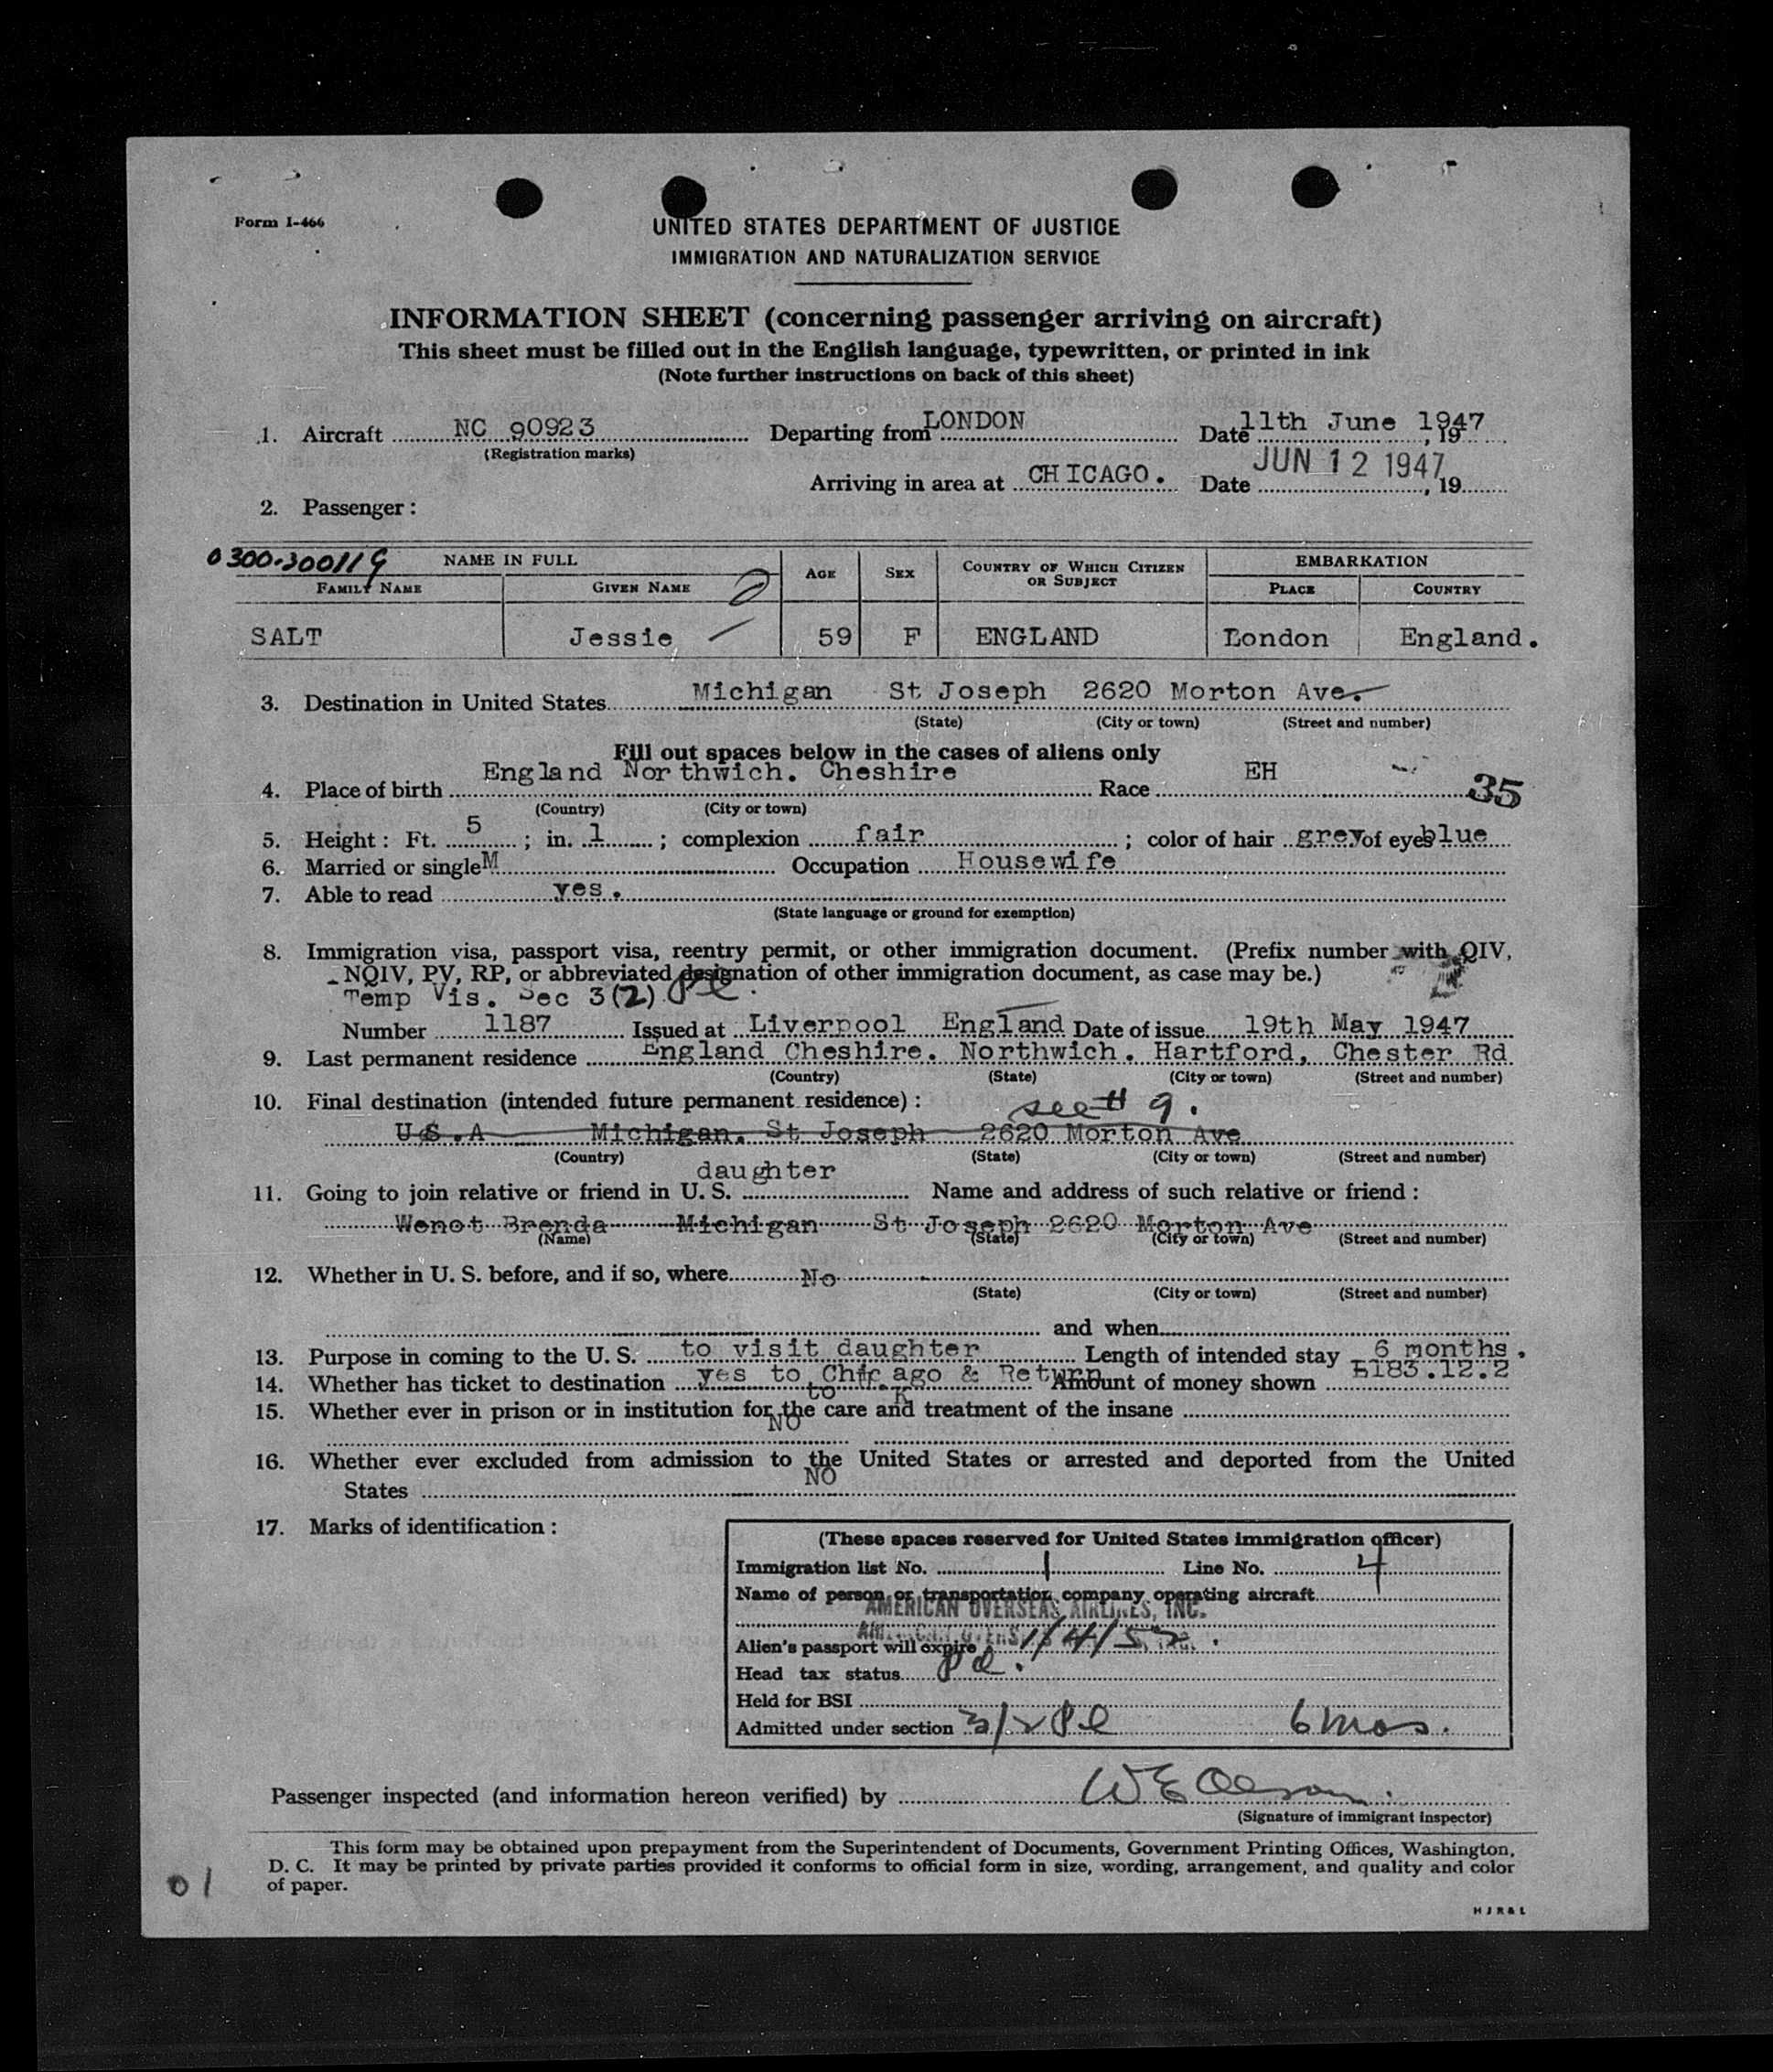 Form I-466
UNITED STATES DEPARTMENT OF JUSTICE
IMMIGRATION AND NATURALIZATION SERVICE
INFORMATION SHEET (concerning passenger arriving on aircraft)
This sheet must be filled out in the English language, typewritten, or printed in ink
(Note further instructions on back of this sheet)
1. Aircraft NC 90923 Departing from LONDON Date 11th June 1947, 19
(Registration marks)
Arriving in area at CHICAGO. Date JUN 12 1947, 19
2. Passenger:
0300-300119 NAME IN FULL AGE SEX COUNTRY OF WHICH CITIZEN OR SUBJECT EMBARKATION
FAMILY NAME GIVEN NAME PLACE COUNTRY
SALT Jessie 59 F ENGLAND London England.
3. Destination in United States Michigan St Joseph 2620 Morton Ave.
(State) (City or town) (Street and number)
Fill out spaces below in the cases of aliens only
4. Place of birth England Northwich. Cheshire Race EH 35
(Country) (City or town)
5. Height: Ft. 5; in. 1; complexion fair; color of hair grey of eyes blue
6. Married or single M Occupation Housewife
7. Able to read yes.
(State language or ground for exemption)
8. Immigration visa, passport visa, reentry permit, or other immigration document. (Prefix number with QIV,
NQIV, PV, RP, or abbreviated designation of other immigration document, as case may be.)
Temp Vis. Sec 3(2) Pl
Number 1187 Issued at Liverpool England Date of issue 19th May 1947
9. Last permanent residence England Cheshire. Northwich. Hartford, Chester Rd
(Country) (State) (City or town) (Street and number)
10. Final destination (intended future permanent residence): see # 9.
U.S.A Michigan. St Joseph 2620 Morton Ave
(Country) (State) (City or town) (Street and number)
11. Going to join relative or friend in U. S. daughter Name and address of such relative or friend:
Wenot Brenda Michigan St Joseph 2620 Morton Ave
(Name) (State) (City or town) (Street and number)
12. Whether in U. S. before, and if so, where No
(State) (City or town) (Street and number)
and when
13. Purpose in coming to the U. S. to visit daughter Length of intended stay 6 months.
14. Whether has ticket to destination yes to Chicago & Return Amount of money shown £183.12.2
to K
15. Whether ever in prison or in institution for the care and treatment of the insane
NO
16. Whether ever excluded from admission to the United States or arrested and deported from the United
States NO
17. Marks of identification:
(These spaces reserved for United States immigration officer)
Immigration list No. 1 Line No. 4
Name of person or transportation company operating aircraft
AMERICAN OVERSEAS AIRLINES, INC.
Alien's passport will expire 1/4/52.
Head tax status Pd.
Held for BSI
Admitted under section 3/2 Pl 6 mos.
Passenger inspected (and information hereon verified) by W E Olson
(Signature of immigrant inspector)
This form may be obtained upon prepayment from the Superintendent of Documents, Government Printing Offices, Washington,
D. C. It may be printed by private parties provided it conforms to official form in size, wording, arrangement, and quality and color
of paper.
01
H J R & L